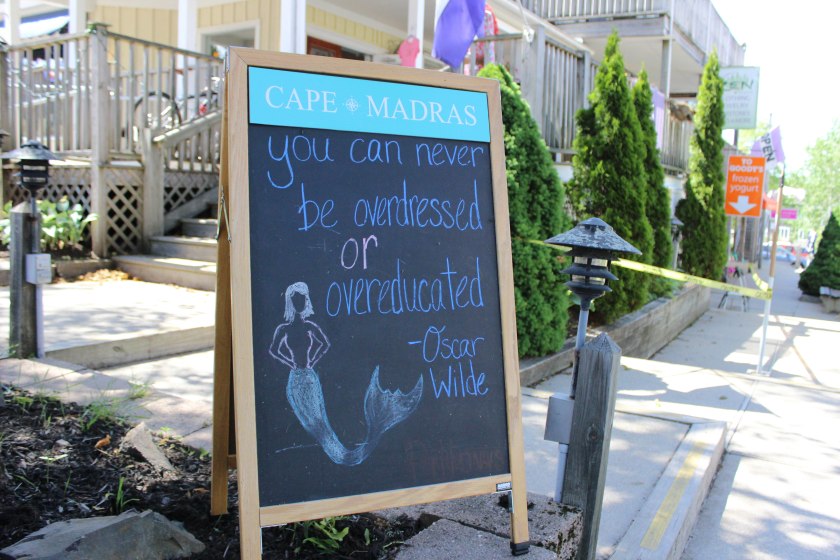 CAPE MADRAS
you can never
be overdressed
or
overeducated
-Oscar
Wilde
OPEN
TO
GOODY'S
frozen
yogurt